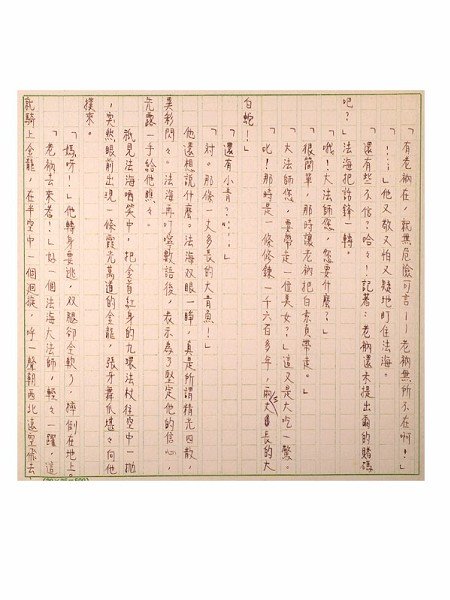 「有老衲在，就無危險可言——老衲無所不在啊！」
「……」他又敬又怕又疑地盯住法海。
「還有些不信？哈々！記著：老衲還未提出爾的賭碼
吧？」法海把話鋒一轉。
「哦！大法師您，您要什麼？」
「很簡單，那時讓老衲把白素貞帶走。」
「大法師您，要帶走一位美女？」這又是大吃一驚。
「叱！那時是一條修鍊一千六百多年，兩丈長的大
白蛇！」
「還有小青？」
「對。那條一丈多長的大青魚！」
他還想說什麼。法海双眼一睜，真是所謂精光四散，
異彩閃々。法海再叮嚀數語後，表示為了堅定他的信心，
先露一手給他瞧々。
祇見法海哂笑中，把金着紅身的九環法杖往空中一拋
，突然眼前出現一條霞光萬道的金龍，張牙舞爪逕々向他
撲來。
「媽呀！」他轉身要逃，双腿卻全軟了，摔倒在地上。
「老衲去來者！」好一個法海大法師，輕々一躍，這
就騎上金龍，在半空中一個迴旋，呼一聲朝西北遠空飛去，